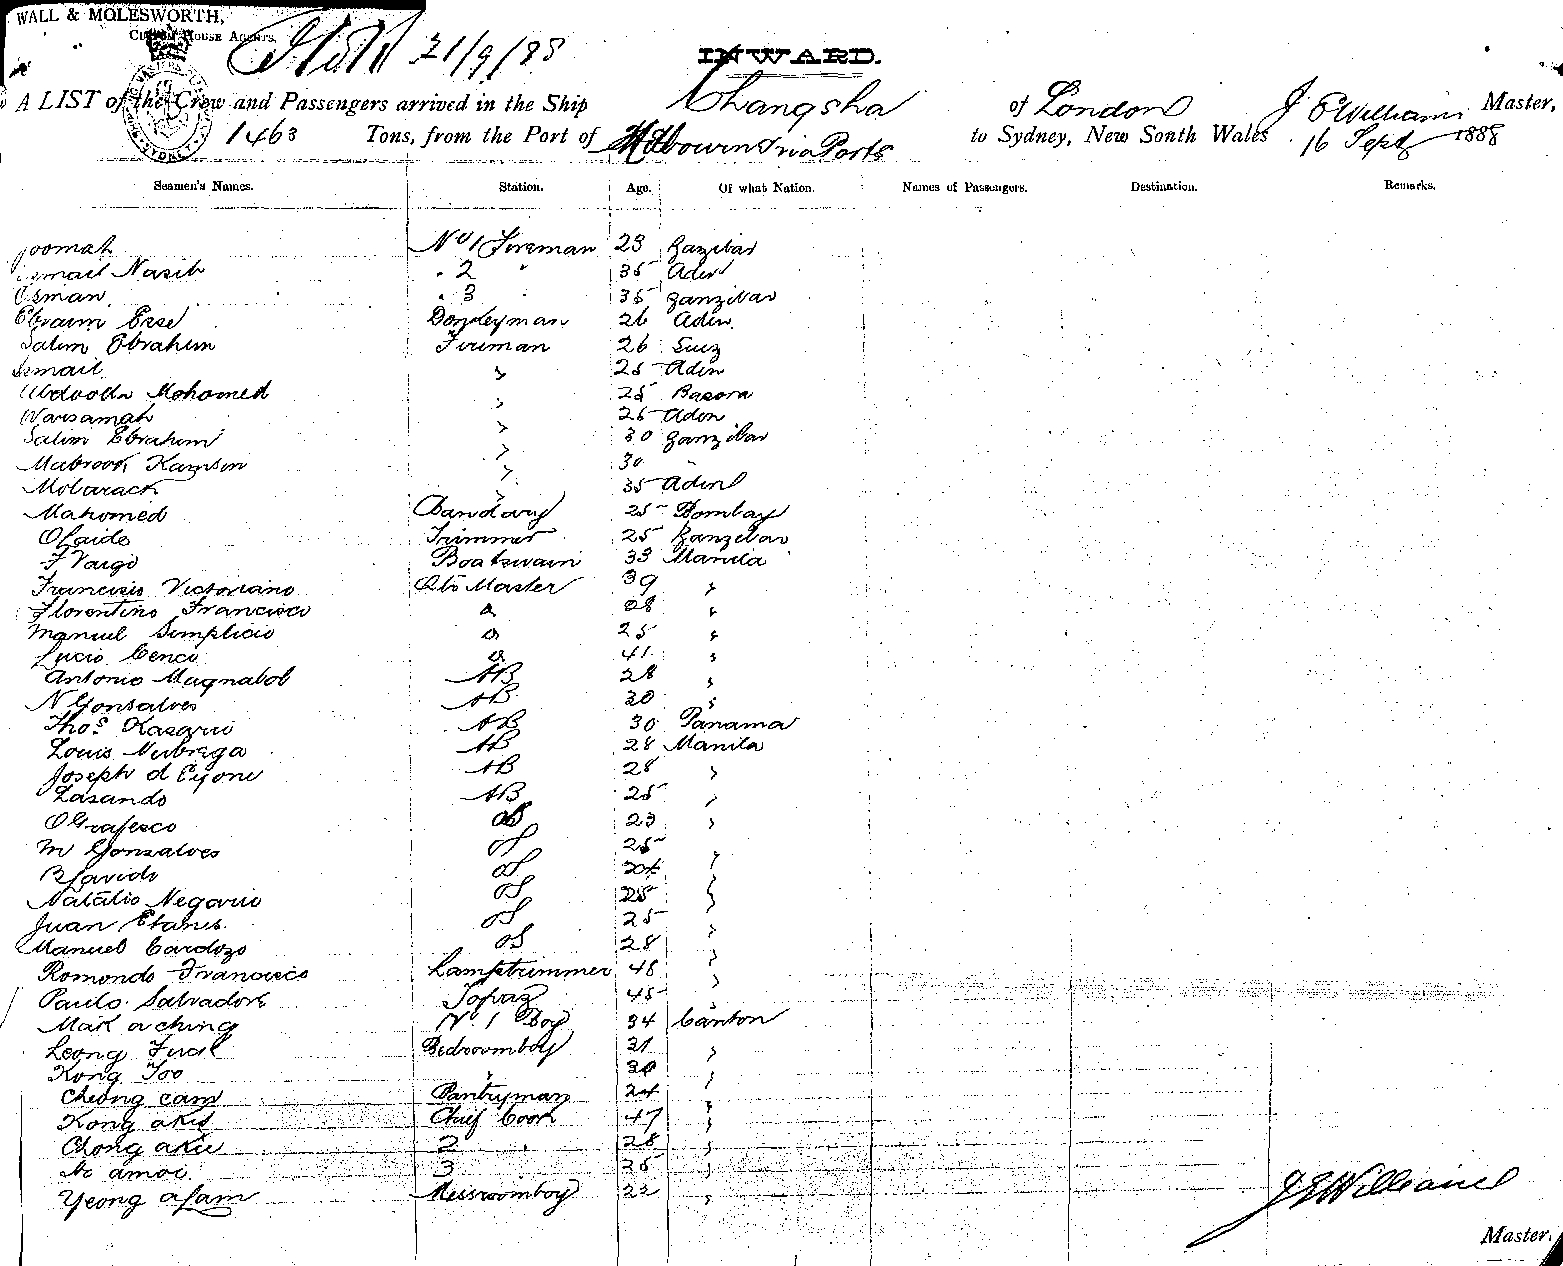 WALL & MOLESWORTH,
Custom House Agents,
21/9/88
INWARD.
A LIST of the Crew and Passengers arrived in the Ship Changsha of London J E Williams Master,
1463 Tons, from the Port of Melbourne via Ports to Sydney, New South Wales 16 Sept 1888
Seamen's Names. Station. Age. Of what Nation. Names of Passengers. Destination. Remarks.
Joomah No 1 Fireman 23 Zanzibar
Ismail Nasib " 2 " 35 Aden
Osman " 3 " 35 Zanzibar
Ebraim Esse Donkeyman 26 Aden
Salim Ebrahim Fireman 26 Suez
Ismail " 25 Aden
Abdoolla Mohomed " 25 Basora
Warsamah " 25 Aden
Salim Ebrahim " 30 Zanzibar
Mabrook Kamsin " 30 "
Mobarack " 35 Aden
Mahomed Bandary 25 Bombay
Trimmer 25 Zanzibar
F Vargo Boatswain 33 Manila
Francisco Victoriano Qtr Master 39 "
Florentino Francisco " 28 "
Manuel Simplicio " 25 "
Lucio Cenco " 41 "
Antonio Magnabol AB 28 "
N Gonsalves AB 30 "
Thos Kasario AB 30 Panama
Louis Nubraga AB 28 Manila
Joseph d Eyone AB 28 "
Lasando AB 25 "
O Grafesco OS 23 "
M Gonsalves OS 25 "
OS 24 "
Natalio Negario OS 25 "
Juan Etanis OS 25 "
Manuel Cardozo OS 28 "
Romondo Francisco Lamptrimmer 48 "
Paulo Salvadore Topaz 45 "
Mak a ching No. 1 Boy 34 Canton
Leong Fual Bedroomboy 21 "
Kong Too " 30 "
Cheong cam Pantryman 24 "
Kong akit Chief Cook 47 "
Chong akie 2 " 28 "
amoi 3 25 "
Yeong afam Messroomboy 22 "
J E Williams
Master.